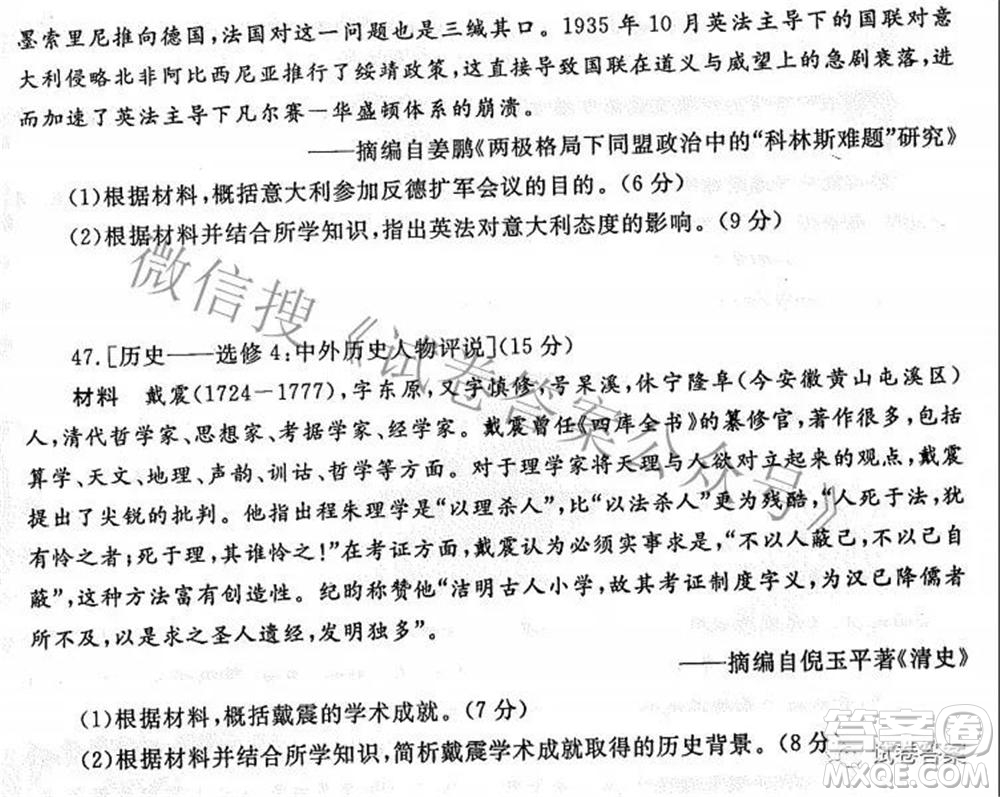 墨索里尼推向德国,法国对这一问题也是三缄其口。1935 年 10 月英法主导下的国联对意
大利侵略北非阿比西尼亚推行了绥靖政策,这直接导致国联在道义与威望上的急剧衰落,进
而加速了英法主导下凡尔赛—华盛顿体系的崩溃。
——摘编自姜鹏《两极格局下同盟政治中的“科林斯难题”研究》
(1)根据材料,概括意大利参加反德扩军会议的目的。(6 分)
(2)根据材料并结合所学知识,指出英法对意大利态度的影响。(9 分)
微信搜《试卷答案公众号》
47.[历史——选修 4:中外历史人物评说](15 分)
材料 戴震(1724-1777),字东原,又字慎修,号杲溪,休宁隆阜(今安徽黄山屯溪区)
人,清代哲学家、思想家、考据学家、经学家。戴震曾任《四库全书》的纂修官,著作很多,包括
算学、天文、地理、声韵、训诂、哲学等方面。对于理学家将天理与人欲对立起来的观点,戴震
提出了尖锐的批判。他指出程朱理学是“以理杀人”,比“以法杀人”更为残酷,“人死于法,犹
有怜之者;死于理,其谁怜之!”在考证方面,戴震认为必须实事求是,“不以人蔽己,不以己自
蔽”,这种方法富有创造性。纪昀称赞他“洁明古人小学,故其考证制度字义,为汉已降儒者
所不及,以是求之圣人遗经,发明独多”。
——摘编自倪玉平著《清史》
(1)根据材料,概括戴震的学术成就。(7 分)
(2)根据材料并结合所学知识,简析戴震学术成就取得的历史背景。(8 分)
答案圈
试卷答案
MXQE.COM